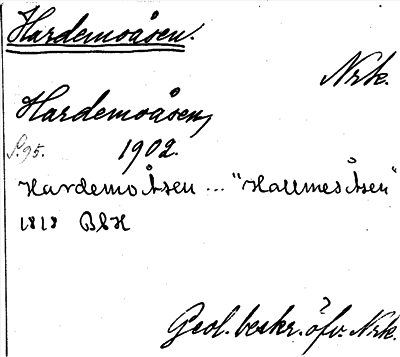 Hardemoåsen.
Nrk.
Hardemoåsen,
S. 95. 1902.
Hardemo Åsen ... "Hallmes Åsen"
1818 BbH
Geol. beskr. öfv. Nrk.